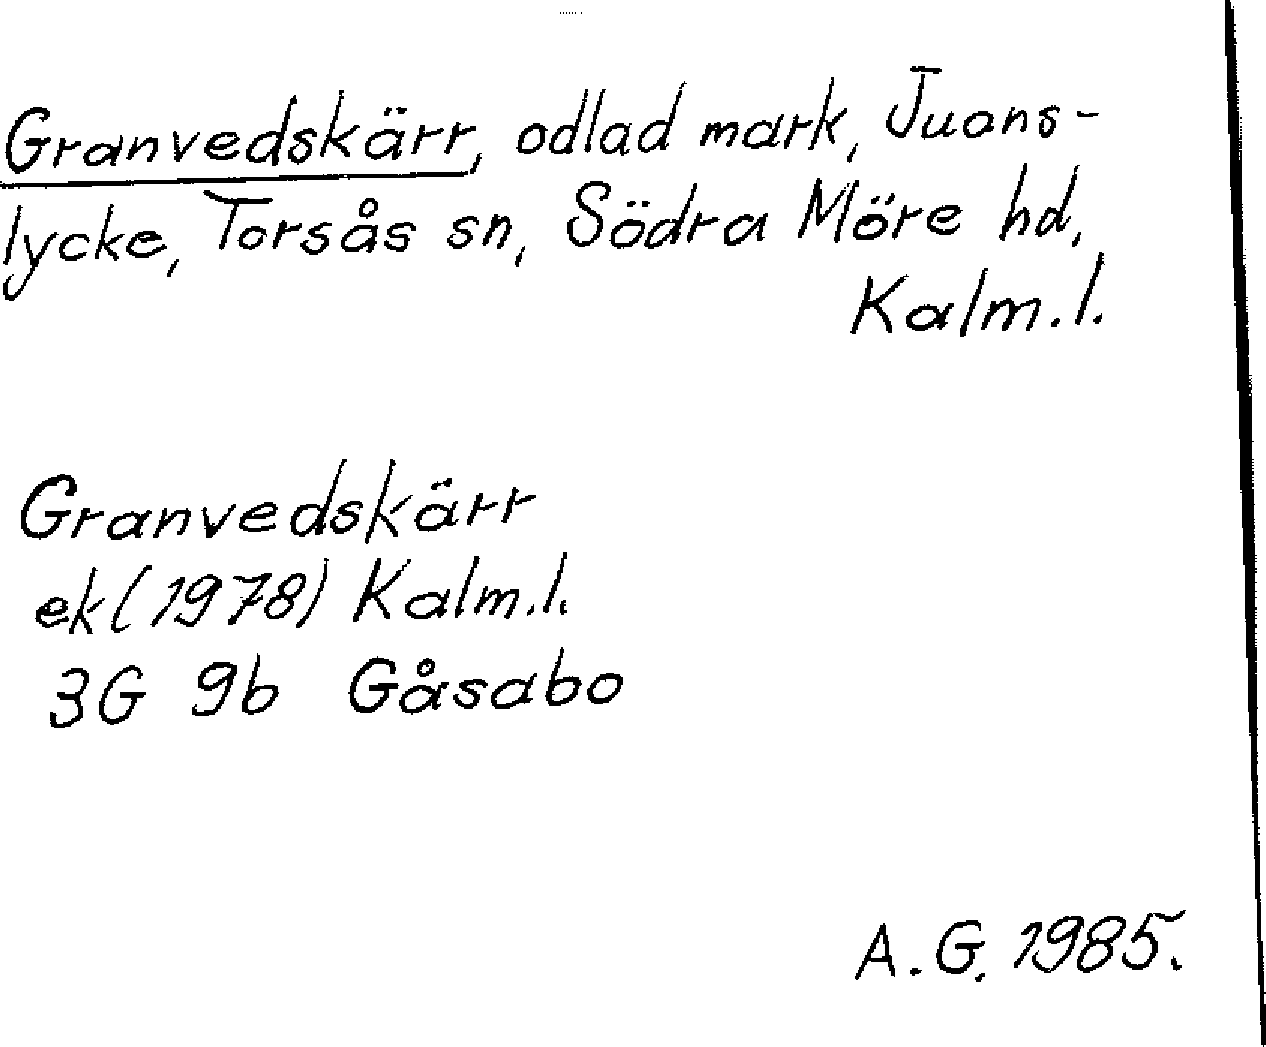 Granvedskärr, odlad mark, Juans-
lycke, Torsås sn, Södra Möre hd,
Kalm.l.
Granvedskärr
ek (1978) Kalm.l.
3G 9b Gåsabo
A.G. 1985.